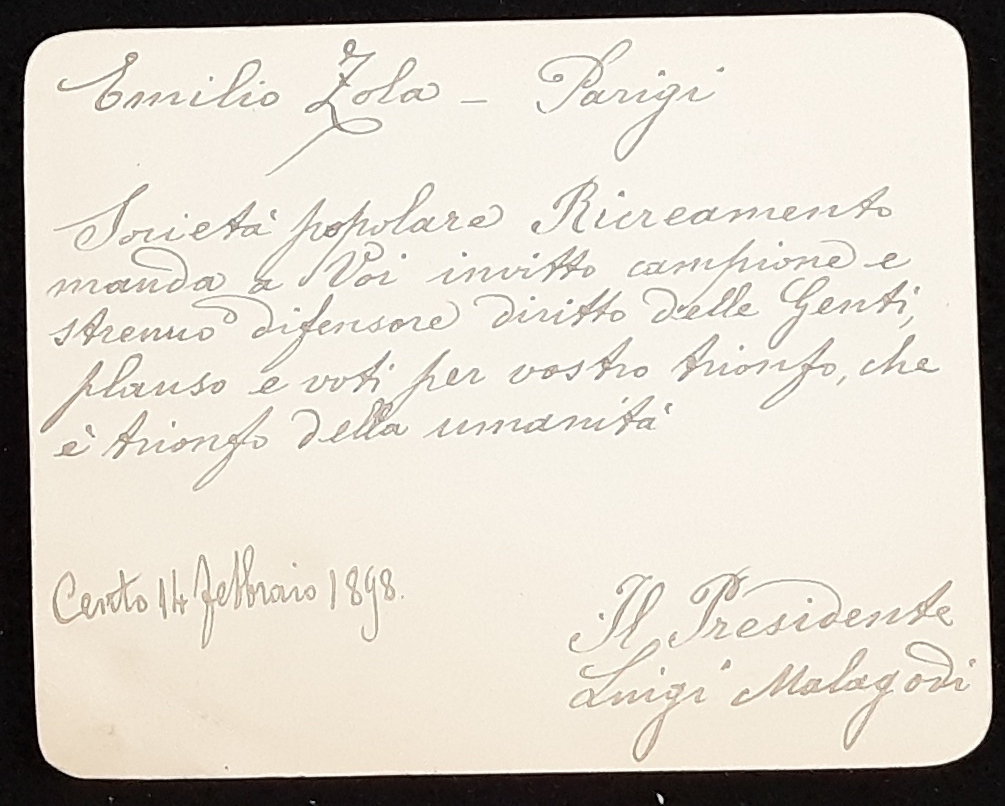 Emilio Zola - Parigi
Società popolare Ricreamento
manda a Voi invitto campione e
strenuo difensore diritto delle Genti,
plauso e voti per vostro trionfo, che
è trionfo della umanità
Cento 14 febbraio 1898.
Il Presidente
Luigi Malagodi